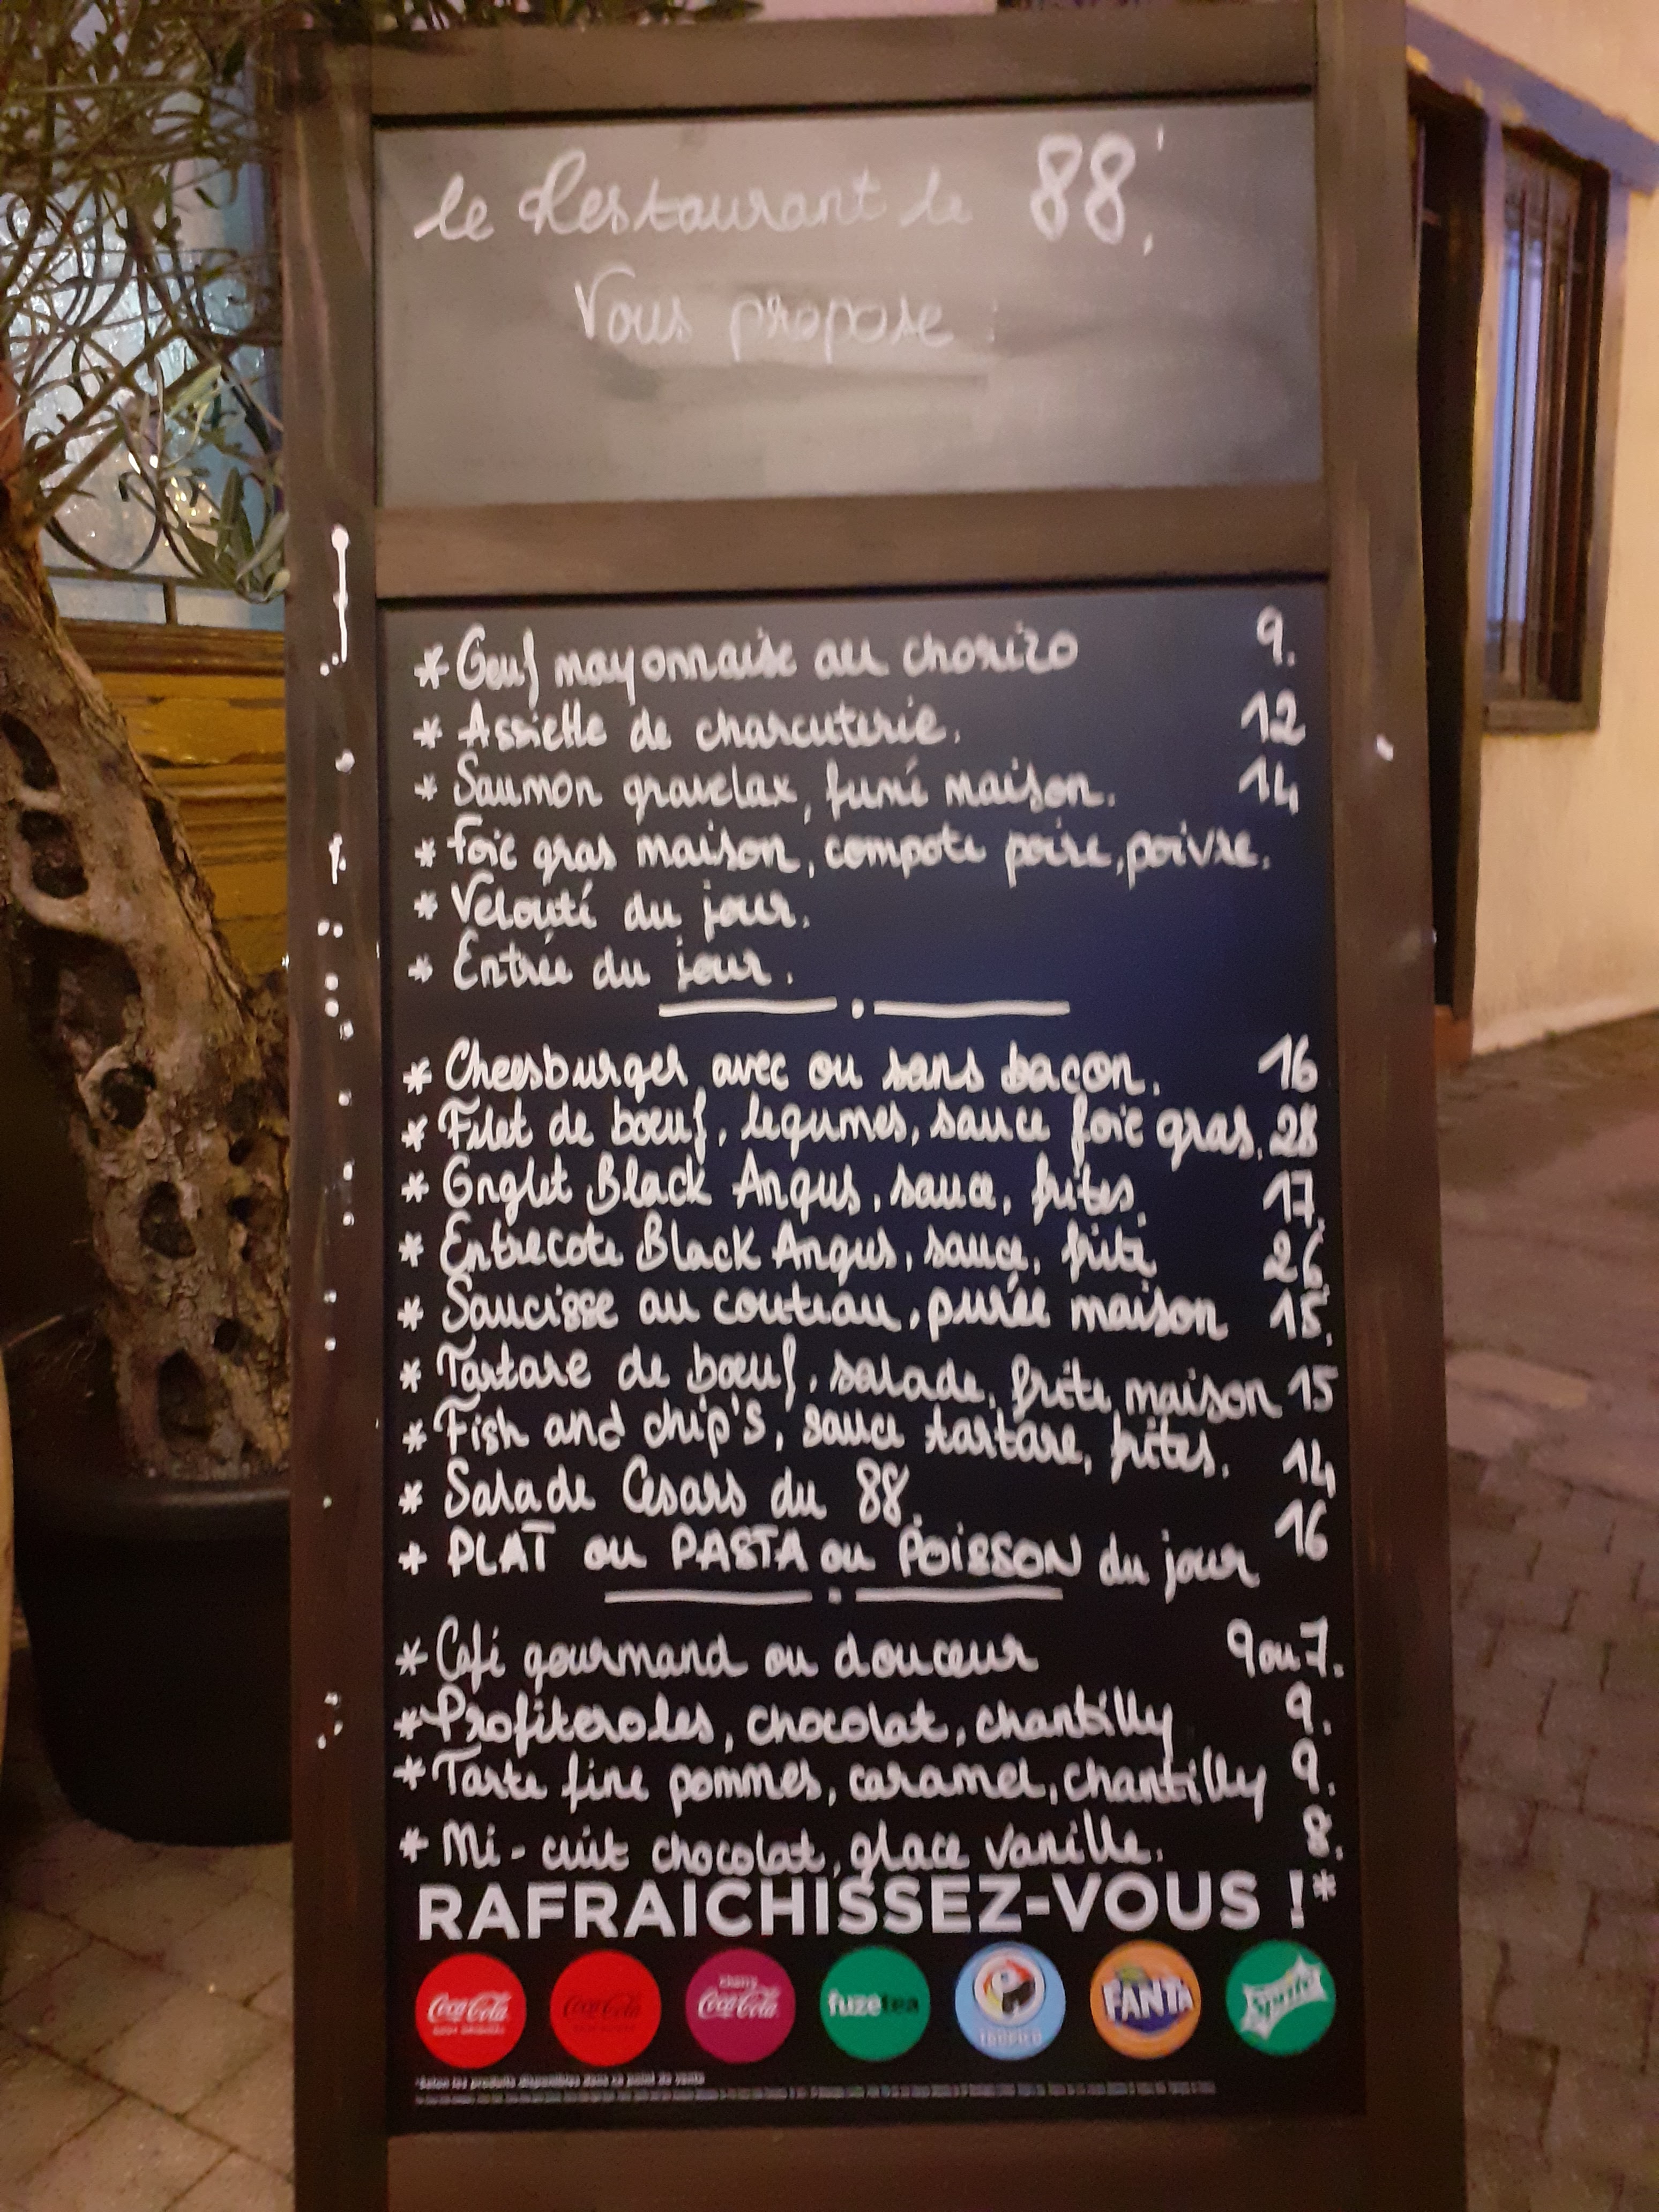 le Restaurant le 88',
Vous propose :
* Oeuf mayonnaise au chorizo 9.
* Assiette de charcuterie. 12
* Saumon gravelax, fumé maison. 14
* Foie gras maison, compote poire, poivre.
* Velouté du jour.
* Entrée du jour.
* Cheesburger avec ou sans bacon. 16
* Filet de bœuf, legumes, sauce foie gras. 28
* Onglet Black Angus, sauce, frites. 17.
* Entrecote Black Angus, sauce, frite 26.
* Saucisse au couteau, purée maison 15.
* Tartare de bœuf, salade, frite maison 15
* Fish and chip's, sauce tartare, frites. 14
* Salade Cesars du 88. 16
* PLAT ou PASTA ou POISSON du jour
* Café gourmand ou douceur 9 ou 7.
* Profiteroles, chocolat, chantilly 9.
* Tarte fine pommes, caramel, chantilly 9.
* Mi-cuit chocolat, glace vanille. 8.
RAFRAICHISSEZ-VOUS !*
Coca-Cola Coca-Cola cherry Coca-Cola fuzetea FANTA Sprite
*Selon les produits disponibles dans ce point de vente